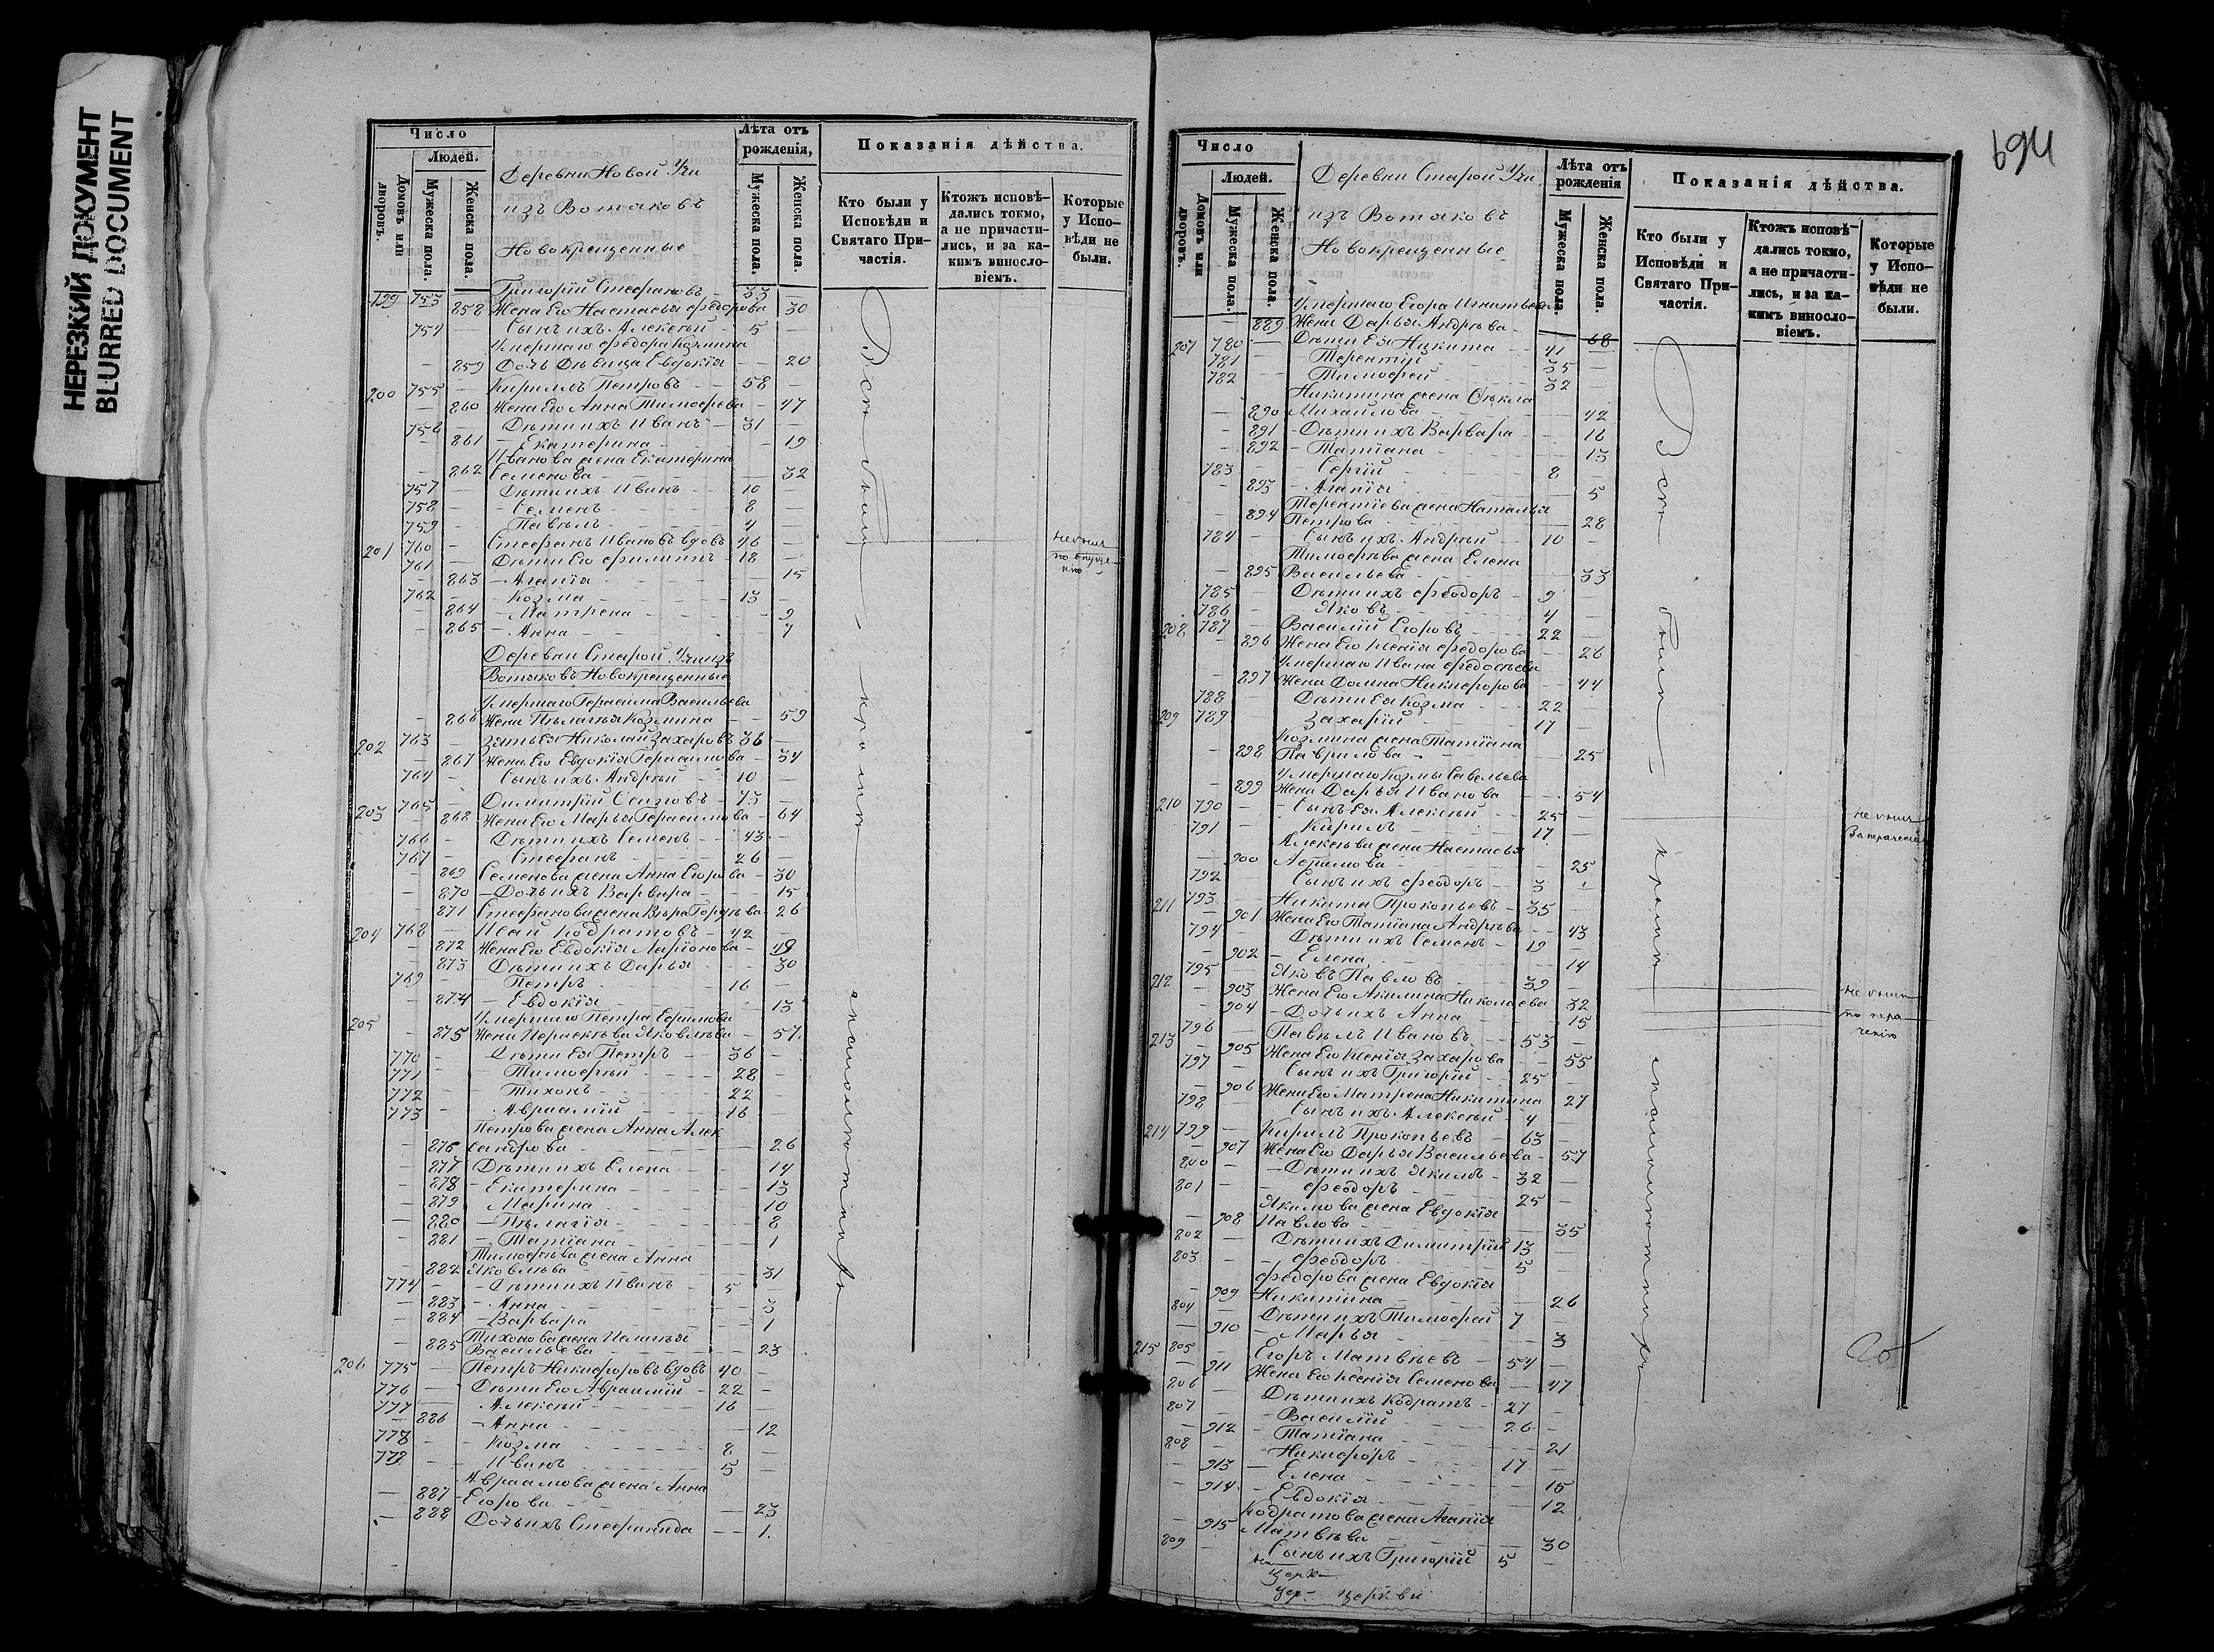 НЕРЕЗКИЙ ДОКУМЕНТ
BLURRED DOCUMENT
Число
Людей.
Домовъ или дворовъ.
Мужеска пола.
Женска пола.
Деревни Новой Учи
изъ Вотяковъ
Новокрещенные
Лѣта отъ рожденія,
Мужеска пола.
Женска пола.
Показанія дѣйства.
Кто были у Исповѣди и Святаго Причастія.
Ктожъ исповѣдались токмо, а не причастились, и за какимъ винословіемъ.
Которые у Исповѣди не были.
199 753 Григорій Стефановъ 33
858 Жена Его Настасья Федорова 30
754 Сынъ ихъ Алексѣй 5
Умершаго Федора Козмина
859 Дочь Дѣвица Евдокія 20
200 755 Кирилъ Петровъ 58
860 Жена Его Анна Тимофеева 47
756 Дѣти ихъ Иванъ 31
861 Екатерина 19
Иванова жена Екатерина
862 Семенова 32
757 Дѣти ихъ Иванъ 10
758 Семенъ 8
759 Павелъ 4
201 760 Стефанъ Ивановъ вдовъ 46
761 Дѣти Его Филиппъ 18
863 Агапія 15
762 Козма 13
864 Матрена 9
865 Анна 7
Деревни Старой Учи изъ
Вотяковъ Новокрещенные
Умершаго Герасима Васильева
866 Жена Пелагѣя Козмина 59
202 763 Зять Ея Николай Захаровъ 36
867 Жена Его Евдокія Герасимова 34
764 Сынъ ихъ Андрѣй 10
203 765 Димитрій Осиповъ 73
868 Жена Его Марѳа Герасимова 64
766 Дѣти ихъ Семенъ 43
767 Стефанъ 26
869 Семенова жена Анна Егорова 30
870 Дочь ихъ Варвара 15
871 Стефанова жена Вѣра Гордѣева 26
204 768 Исай Кодратовъ 42
872 Жена Его Евдокія Ларіонова 49
873 Дѣти ихъ Дарья 30
769 Петръ 16
874 Евдокія 13
205 Умершаго Петра Ефимова
875 Жена Параскева Яковлева 57
770 Дѣти Ея Петръ 36
771 Тимофѣй 28
772 Тихонъ 22
773 Авраамій 16
Петрова жена Анна Алек
876 сандрова 26
877 Дѣти ихъ Елена 14
878 Екатерина 13
879 Марина 10
880 Пелагія 8
881 Татіана 1
Тимофѣева жена Анна
882 Яковлева 31
774 Дѣти ихъ Иванъ 5
883 Анна 3
884 Варвара 1
Тихонова жена
885 Васильева 23
206 775 Петръ Никифоровъ вдовъ 40
776 Дѣти Его Авраамій 22
777 Алексѣй 16
886 Анна 12
778 Козма 8
779 Иванъ 5
Авраамова жена Анна
887 Егорова 23
888 Дочь ихъ Стефанида 1
Всѣ были кромѣ
694
Число
Людей.
Домовъ или дворовъ.
Мужеска пола.
Женска пола.
Деревни Старой Учи
изъ Вотяковъ
Новокрещенные
Лѣта отъ рожденія
Мужеска пола.
Женска пола.
Показанія дѣйства.
Кто были у Исповѣди и Святаго Причастія.
Ктожъ исповѣдались токмо, а не причастились, и за какимъ винословіемъ.
Которые у Исповѣди не были.
Умершаго Егора Игнатьева
889 Жена Дарья Андрѣева 68
207 780 Дѣти Ея Никита 41
781 Терентій 35
782 Тимофей 32
Никитина жена Ѳекла
890 Михайлова 42
891 Дѣти ихъ Варвара 16
892 Татіана 13
783 Сергій 8
893 Агапія 5
Терентіева жена Наталья
894 Петрова 28
784 Сынъ ихъ Андрѣй 10
Тимофѣева жена Елена
895 Васильева 33
785 Дѣти ихъ Феодоръ 9
786 Яковъ 4
208 787 Василій Егоровъ 22
896 Жена Его Ксенія Федорова 26
Умершаго Ивана Федосѣева
897 Жена Домна Никифорова 44
788 Дѣти Ея Козма 22
209 789 Захарій 17
Козмина жена Татіана
898 Гаврилова 25
Умершаго Козмы Савельева
899 Жена Дарья Иванова 54
210 790 Сынъ Ея Алексѣй 25
791 Кирилъ 17
Алексѣева жена Настасья
900 25
792 Сынъ ихъ Феодоръ 3
211 793 Никита Прокопьевъ 35
901 Жена Его Татіана Андрѣева 43
794 Дѣти ихъ Семенъ 19
902 Елена 14
212 795 Яковъ Павловъ 39
903 Жена Его Акилина Николаева 32
904 Дочь ихъ Анна 15
213 796 Павелъ Ивановъ 53
905 Жена Его Ксенія Захарова 55
797 Сынъ ихъ Григорій 25
906 Жена Его Матрена Никитина 27
798 Сынъ ихъ Алексѣй 4
214 799 Кирилъ Прокопьевъ 63
907 Жена Его Дарья Васильева 57
800 Дѣти ихъ Якимъ 32
801 Феодоръ 25
Якимова жена Евдокія
908 Павлова 35
802 Дѣти ихъ Димитрій 13
803 Феодоръ 5
Федорова жена Евдокія
909 Никитина 26
804 Дѣти ихъ Тимофей 7
910 Марья 3
215 805 Егоръ Матвѣевъ 54
911 Жена Его Ксенія Семенова 47
806 Дѣти ихъ Кодратъ 27
807 Василій 26
912 Татіана 21
808 Никифоръ 17
913 Елена 15
914 Евдокія 12
Кодратова жена Агапія
915 Матвѣева 30
809 Сынъ ихъ Григорій 5
Всѣ были кромѣ
церкви